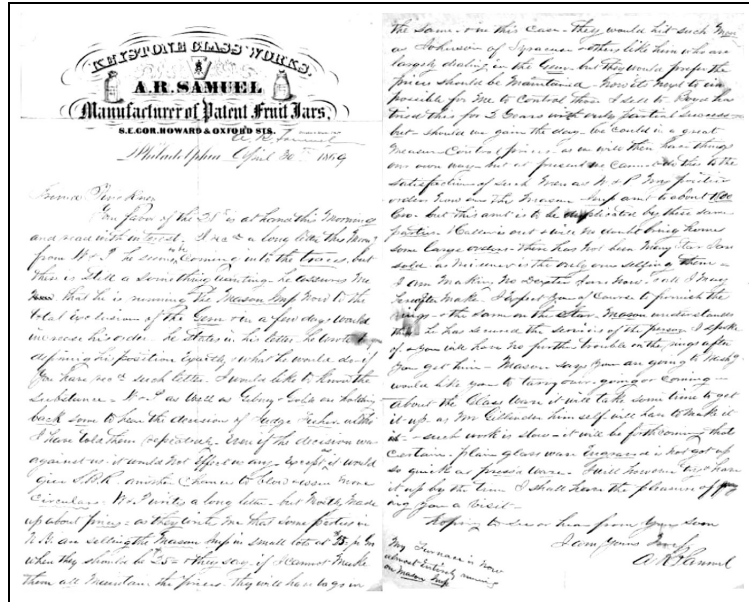 KEYSTONE GLASS WORKS.
A.R. SAMUEL
Manufacturer of Patent Fruit Jars,
S.E. COR. HOWARD & OXFORD STS.
A. R. Samuel
Philadelphia April 30 1869
Friend
favor of the 28 is at hand this Morning
and read with interest. I rec'd a long letter this Morn
from W & P. he seems coming into the traces, but
there is still a something wanting - he assures me
that he is running the Mason Imp Now to the
total Exclusion of the Gem & in a few days would
increase his order. he States in his letter, he wrote you
defining his position Exactly & what he would do if
You have rec'd such letter. I would like to know the
substance. W & P as well as are holding
back some to hear the decision of Judge
I have told them repeatedly. Even if the decision was
against us it would Not Effect us any. Except it would
give another Chance to blow & issue more
Circulars. W & P write a long letter - but Mostly Made
up about prices - as they write me that some parties in
N.Y. are selling the Mason Imp in small lots at
when they should be & they say if I Cannot Make
them all Maintain the prices. they will have to go in
the same & in this case they would hit such Men
as Johnson of Syracuse & others like him who are
largely dealing in the Gem. but they would prefer the
prices should be Maintained - Now its Next to im
possible for Me to Control those I sell to. have
tried this for 2 Years with only partial success -
but should we gain the day. we could in a great
Measure Control prices. as we will then have things
our own way. but at present we Cannot do this to the
satisfaction of such Men as W & P. My positive
orders Now are The Mason Imp amt to about
Gro. but this amt is to be duplicated by these same
parties. is out & will no doubt bring home
some large orders. There has Not been Many Jars
sold as is the only one selling them -
I am Making No Jars Now & all I May
hereafter Make. I Expect you of Course to furnish the
rings & the same on the Star. Mason understands
this. he has secured the services of the person I spoke
of & you will have No further trouble on the rings after
You get him - Mason says You are going to Wash'g
would like you to going or Coming -
about the Glass ware it will take some time to get
it up. as Mr Gillinder him self will have to make it
- such work is slow - it will be forthcoming that
certain. plain glass ware is not got up
so quick as press'd ware. I will however try & have
it up by the time I shall have the pleasure of pay
ing you a Visit -
hoping to see or hear from You soon
I am Yours Truly
A R Samuel
My Furnace is Now
almost Entirely running
on Mason Imp